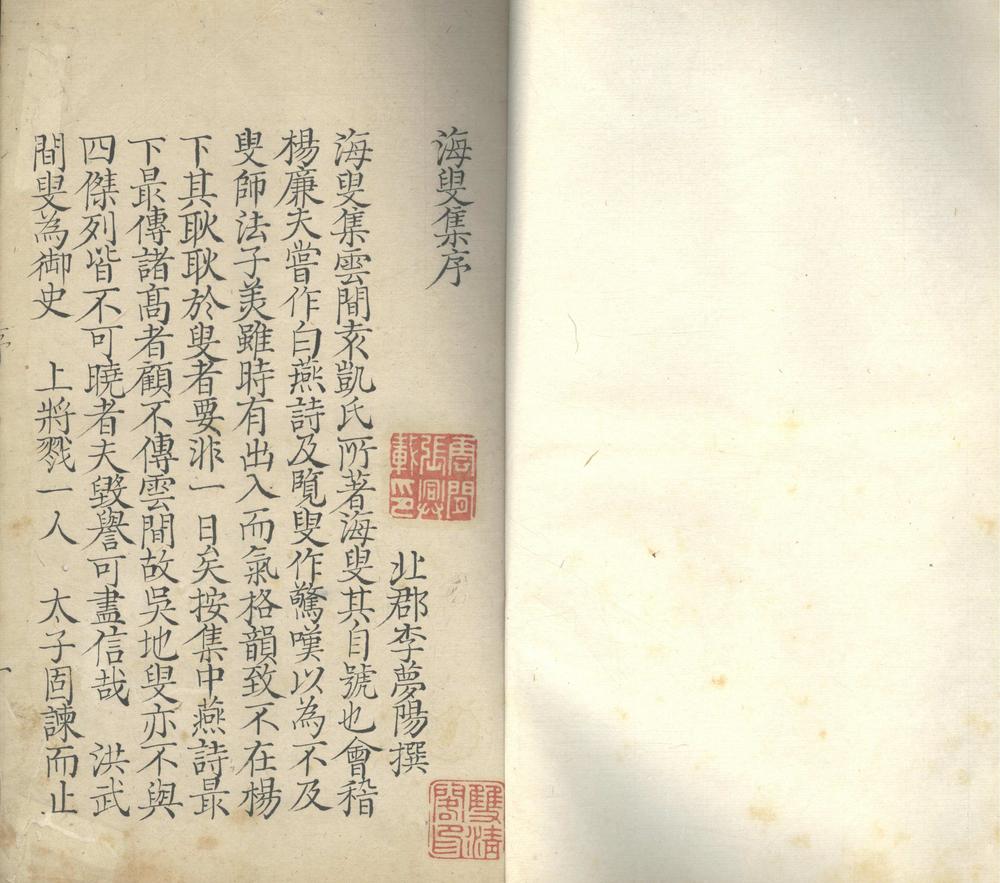 海叟集序
北郡李夢陽撰
海叟集雲間袁凱氏所著海叟其自號也會稽
楊廉夫嘗作白燕詩及覽叟作驚嘆以為不及
叟師法子美雖時有出入而氣格韻致不在楊
下其耿耿於叟者要非一日矣按集中燕詩最
下最傳諸高者顧不傳雲間故吳地叟亦不與
四傑列皆不可曉者夫毀譽可盡信哉　洪武
間叟為御史　上將戮一人　太子固諫而止
雙濤
閣印